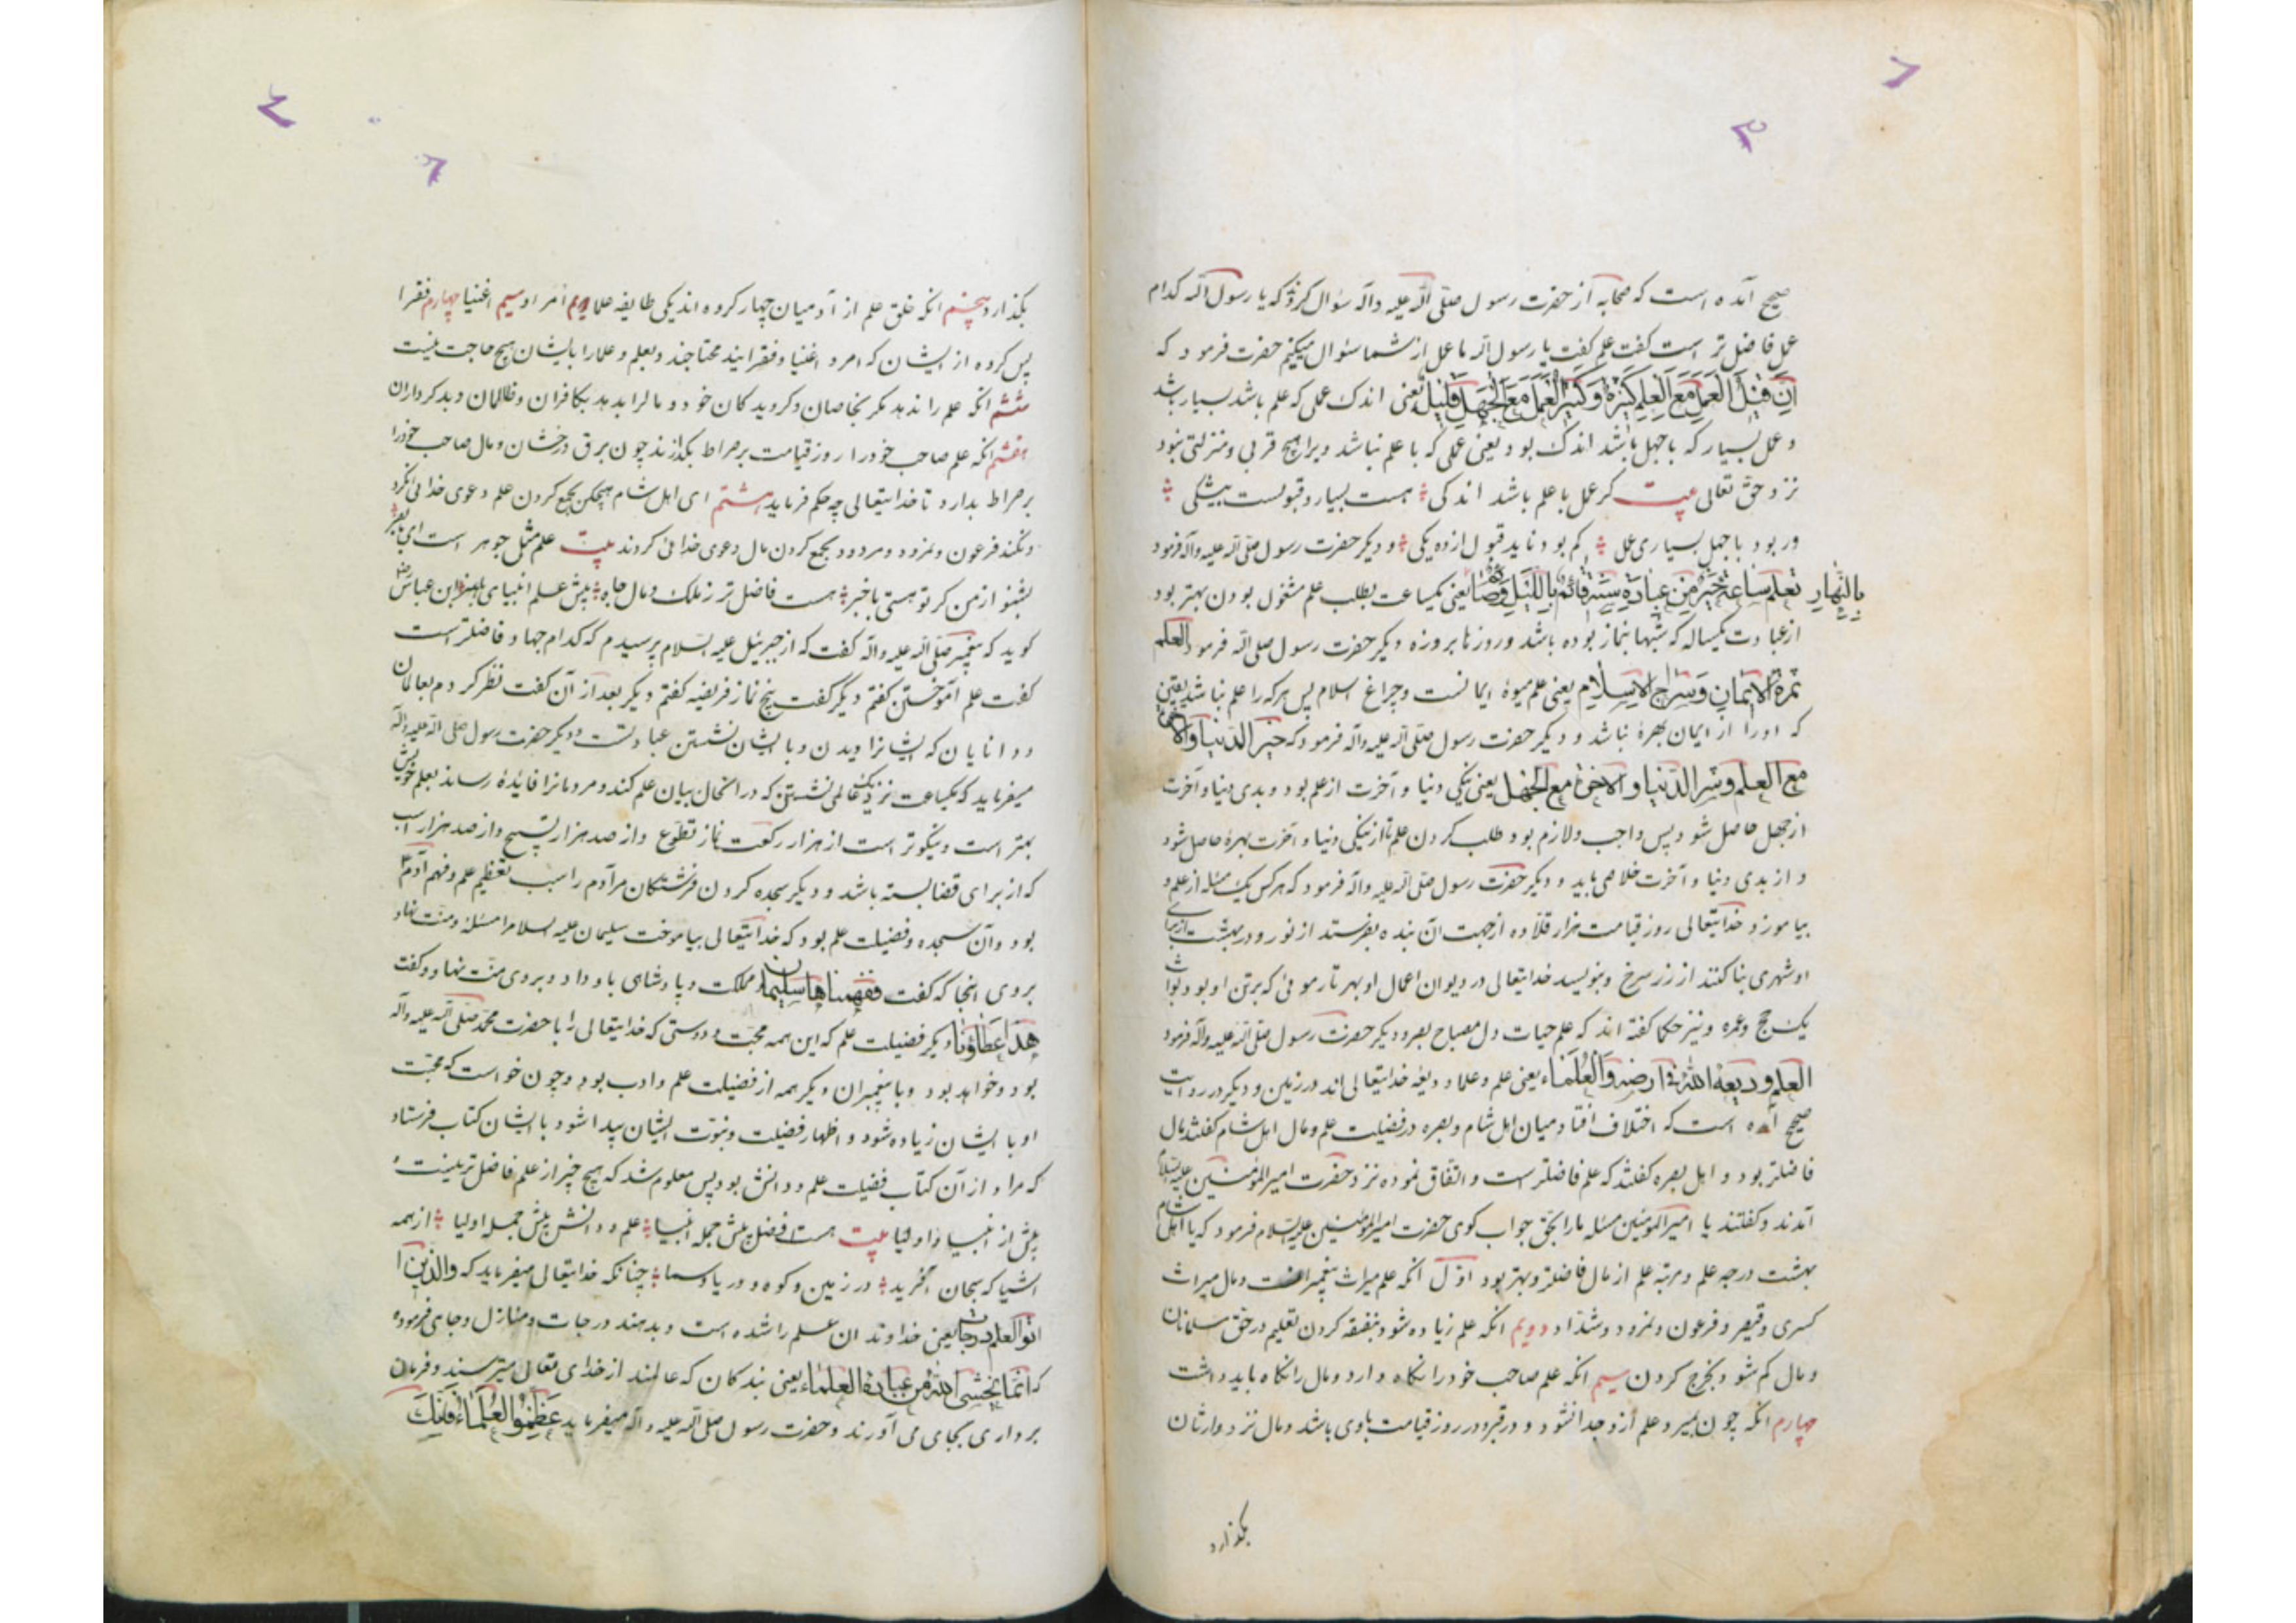 صحیح آمده است که صحابه از حضرت رسول صلّی الله علیه وآله سؤال کردند که یا رسول الله کدام
عمل فاضل تر است گفت علم گفت یا رسول الله ما عمل از شما سئوال میکنیم حضرت فرمود که
اِنَّ قَلیلَ العَمَلِ مَعَ العِلمِ کَثیرَةٌ وَکَثیرُ العَمَلِ مَعَ الجَهلِ قَلیلٌ یعنی اندک عملی که علم باشد بسیار باشد
و عمل بسیار که باجهل باشد اندک بود یعنی عملی که با علم نباشد ویرا هیچ قربی و منزلتی نبود
نزد حق تعالی بیت کر عمل با علم باشد اندکی هست بسیار و قبولست بیشکی
ور بود با جهل بسیاری عمل کم بود ناید قبول ازده یکی و دیکر حضرت رسول صلی الله علیه وآله فرمود
تعلم ساعة خیر من عبادة سنة قائم باللیل وصا یعنی یکساعت بطلب علم مشغول بودن بهتر بود
بِالنَّهارِ
از عبادت یکساله که شبها بنماز بوده باشد و روزها بروزه و یکر حضرت رسول صلی الله فرمود العلم
ثمرة الایمان وسراج الاسلام یعنی علم میوۀ ایمانست وچراغ اسلام پس هرکه را علم نباشد یقین
که اورا از ایمان بهرۀ نباشد و دیکر حضرت رسول صلّی الله علیه وآله فرمود که خیر الدنیا والاخرة
مع العلم وشر الدنیا والاخرة مع الجهل یعنی نیکی دنیا و آخرت از علم بود و بدی دنیا و آخرت
از جهل حاصل شود پس واجب ولازم بود طلب کردن علم تا از نیکی دنیا و آخرت بهرۀ حاصل شود
و از بدی دنیا و آخرت خلاصی یابد و دیکر حضرت رسول صلّی الله علیه وآله فرمود که هرکس یک مسئله از علم
بیاموزد خدایتعالی روز قیامت هزار قلاده ازجهت آن بنده بفرستد از نور و در بهشت از برای
او شهری بنا کنند از زر سرخ و بنویسد خدایتعالی در دیوان اعمال او بهر تار موئی که برتن او بود ثواب
یک حج وعمره و نیز حکما کفته اند که علم حیات دل مصباح بصر و دیکر حضرت رسول صلّی الله علیه وآله فرمود
العلم ودیعة الله فی ارضه والعلماء یعنی علم و علما ودیعۀ خدایتعالی اند در زمین و دیکر در روایت
صحیح آمده است که اختلاف افتاد میان اهل شام و بصره در فضیلت علم و مال اهل شام کفتند مال
فاضلتر بود و اهل بصره کفتند که علم فاضلتر است و اتفاق نموده نزد حضرت امیر المؤمنین علیه السلام
آمدند وکفتند یا امیر المؤمنین مسئله ما را بحق جواب کوی حضرت امیر المؤمنین علیه السلام فرمود که یا اهل شام
بهشت درجه علم و مرتبه علم از مال فاضلتر و بهتر بود اوّل آنکه علم میراث پیغمبرانست و مال میراث
کسری و قیصر و فرعون و نمرود و شدّاد دویم انکه علم زیاده شود بنفقه کردن تعلیم در حق مسلمانان
و مال کم شود بخرج کردن سیم انکه علم صاحب خود را نکاه دارد و مال را نکاه باید داشت
چهارم انکه چون بمیرد علم ازو جدا نشود و در قبر و در روز قیامت باوی باشد و مال نزد وارثان
بکذارد
بکذارد پنجم انکه خلق علم از آدمیان چهار کروه اند یکی طایفه علما دویم امرا وسیم اغنیا چهارم فقرا
پس کروه از ایشان که امرا و اغنیا و فقرایند محتاجند بعلم و علما را بایشان هیچ حاجت نیست
ششم انکه علم را ندهد مکر بخاصان وکرویدکان خود و مال را بدهد بکافران و ظالمان و بدکرداران
هفتم انکه علم صاحب خود را روز قیامت بر صراط بکذراند چون برق درخشان و مال صاحب خود را
بر صراط بدارد تا خدایتعالی چه حکم فرماید هشتم ای اهل شام هیچکس بجمع کردن علم دعوی خدائی نکرد
ونکند فرعون و نمرود و مردود بجمع کردن مال دعوی خدائی کردند بیت علم مثل جوهر است ای
بشنو از من کر تو هستی باخبر هست فاضل تر ز ملک و مال جاه پیش علم انبیای ابن عباس
کوید که پیغمبر صلّی الله علیه وآله کفت که از جبرئیل علیه السّلام پرسیدم که کدام جهاد فاضلتر است
کفت علم آموختن کفتم دیگر کفت پنج نماز فریضه کفتم دیکر بعد از آن کفت نظر کردم بعالمان
و دانایان که ایشانرا دیدن و با ایشان نشستن عبادتست و دیکر حضرت رسول صلی الله علیه وآله
میفرماید که یکساعت نزدیک عالمی نشستن که در آنحال بیان علم کند و مردمانرا فائدۀ رساند بعلم خویش
بهتر است و نیکوتر است از هزار رکعت نماز تطوّع و از صد هزار تسبیح و از صد هزار اسب
که از برای قضا بسته باشد و دیکر سجده کردن فرشتکان مر آدم را سبب تعظیم علم و فهم آدم
بود و آن سجده و فضیلت علم بود که خدایتعالی بیاموخت سلیمان علیه السلام را مسئلۀ و منّت نهاد
بروی انجا که کفت فَفَهَّمناها سلیمان و مملکت و پادشاهی باو داد و بروی منّت نهاد و کفت
هذا عَطَاؤُنا دیکر فضیلت علم که این همه محبّت و دوستی که خدایتعالی را با حضرت محمّد صلّی الله علیه وآله
بود و خواهد بود و با پیغمبران دیکر همه از فضیلت علم و ادب بود و چون خواست که محبّت
او با ایشان زیاده شود و اظهار فضیلت و نبوّت ایشان پیدا شود با ایشان کتاب فرستاد
که مراد از آن کتاب فضیلت علم و دانش بود پس معلوم شد که هیچ چیز از علم فاضل تر نیست
پیش از انبیا و اولیا بیت هست فضل پیش جمله انبیا علم و دانش پیش جمله اولیا از همه
اشیا که سبحان آفرید در زمین و کوه و دریا و سما چنانکه خدایتعالی میفرماید که والذین ا
وتوا العلم درجات یعنی خداوندان علم را شده است و بدهند درجات و منازل و جاهی فرموده
که انما یخشی الله من عباده العلماء یعنی بندکان که عالمند از خدای تعالی میترسند و فرمان
برداری بجای می آورند و حضرت رسول صلی الله علیه وآله میفرماید عَظِّمُوا العُلَمَاءَ فَاِنَّکَ